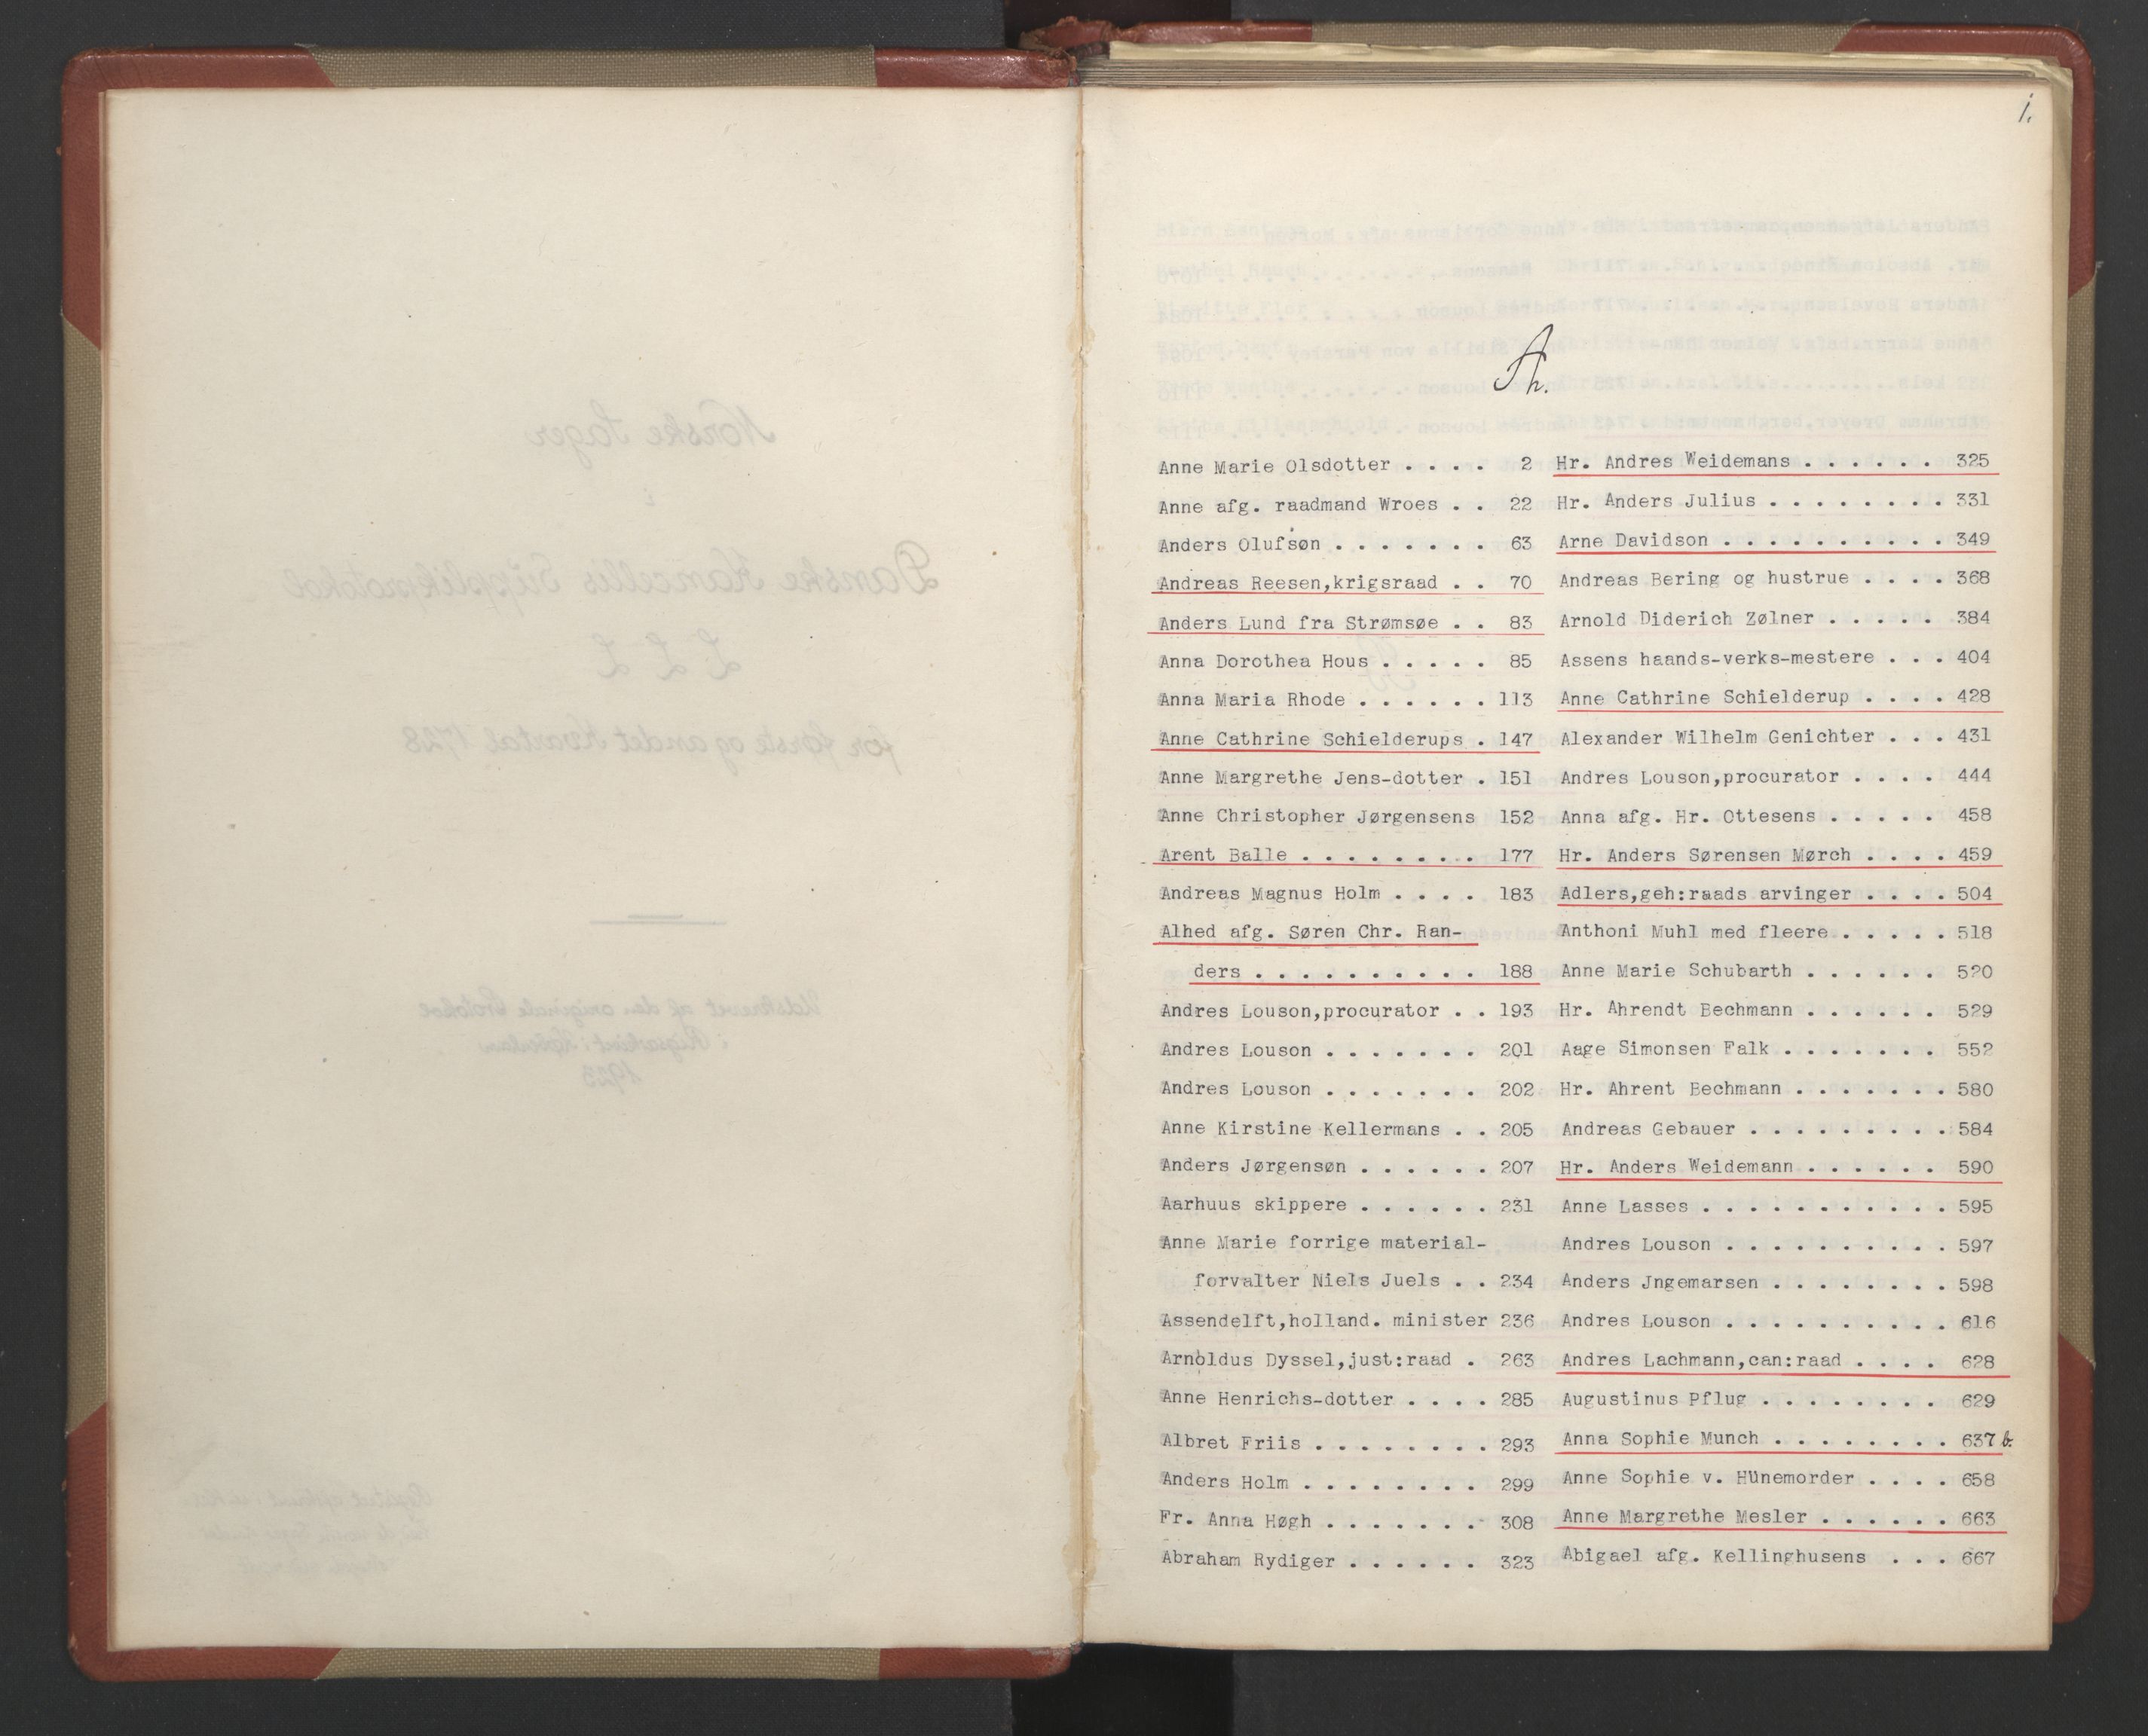 1.
A.
Anne Marie Olsdotter . . . . 2
Anne afg. raadmand Wroes . . 22
Anders Olufsøn . . . . . . . 63
Andreas Reesen,krigsraad . . 70
Anders Lund fra Strømsøe . . 83
Anna Dorothea Hous . . . . . 85
Anna Maria Rhode . . . . . . 113
Anne Cathrine Schielderups . 147
Anne Margrethe Jens-dotter . 151
Anne Christopher Jørgensens 152
Arent Balle . . . . . . . . 177
Andreas Magnus Holm . . . . 183
Alhed afg. Søren Chr. Ran-
ders . . . . . . . . . . 188
Andres Louson,procurator . . 193
Andres Louson . . . . . . . 201
Andres Louson . . . . . . . 202
Anne Kirstine Kellermans . . 205
Anders Jørgensøn . . . . . . 207
Aarhuus skippere . . . . . . 231
Anne Marie forrige material-
forvalter Niels Juels . . 234
Assendelft,holland. minister 236
Arnoldus Dyssel,just:raad . 263
Anne Henrichs-dotter . . . . 285
Albret Friis . . . . . . . . 293
Anders Holm . . . . . . . . 299
Fr. Anna Høgh . . . . . . . 308
Abraham Rydiger . . . . . . 323
Hr. Andres Weidemans . . . . . . 325
Hr. Anders Julius . . . . . . . . 331
Arne Davidson . . . . . . . . . . 349
Andreas Bering og hustrue . . . . 368
Arnold Diderich Zølner . . . . . 384
Assens haands-verks-mestere . . . 404
Anne Cathrine Schielderup . . . . 428
Alexander Wilhelm Genichter . . . 431
Andres Louson,procurator . . . . 444
Anna afg. Hr. Ottesens . . . . . 458
Hr. Anders Sørensen Mørch . . . . 459
Adlers,geh:raads arvinger . . . . 504
Anthoni Muhl med fleere. . . . . 518
Anne Marie Schubarth . . . . . . 520
Hr. Ahrendt Bechmann . . . . . . 529
Aage Simonsen Falk . . . . . . . 552
Hr. Ahrent Bechmann . . . . . . . 580
Andreas Gebauer . . . . . . . . . 584
Hr. Anders Weidemann . . . . . . 590
Anne Lasses . . . . . . . . . . . 595
Andres Louson . . . . . . . . . . 597
Anders Jngemarsen . . . . . . . . 598
Andres Louson . . . . . . . . . . 616
Andres Lachmann,can:raad . . . . 628
Augustinus Pflug . . . . . . . . 629
Anna Sophie Munch . . . . . . . . 637 b.
Anne Sophie v. Hünemorder . . . . 658
Anne Margrethe Mesler . . . . . . 663
Abigael afg. Kellinghusens . . . 667